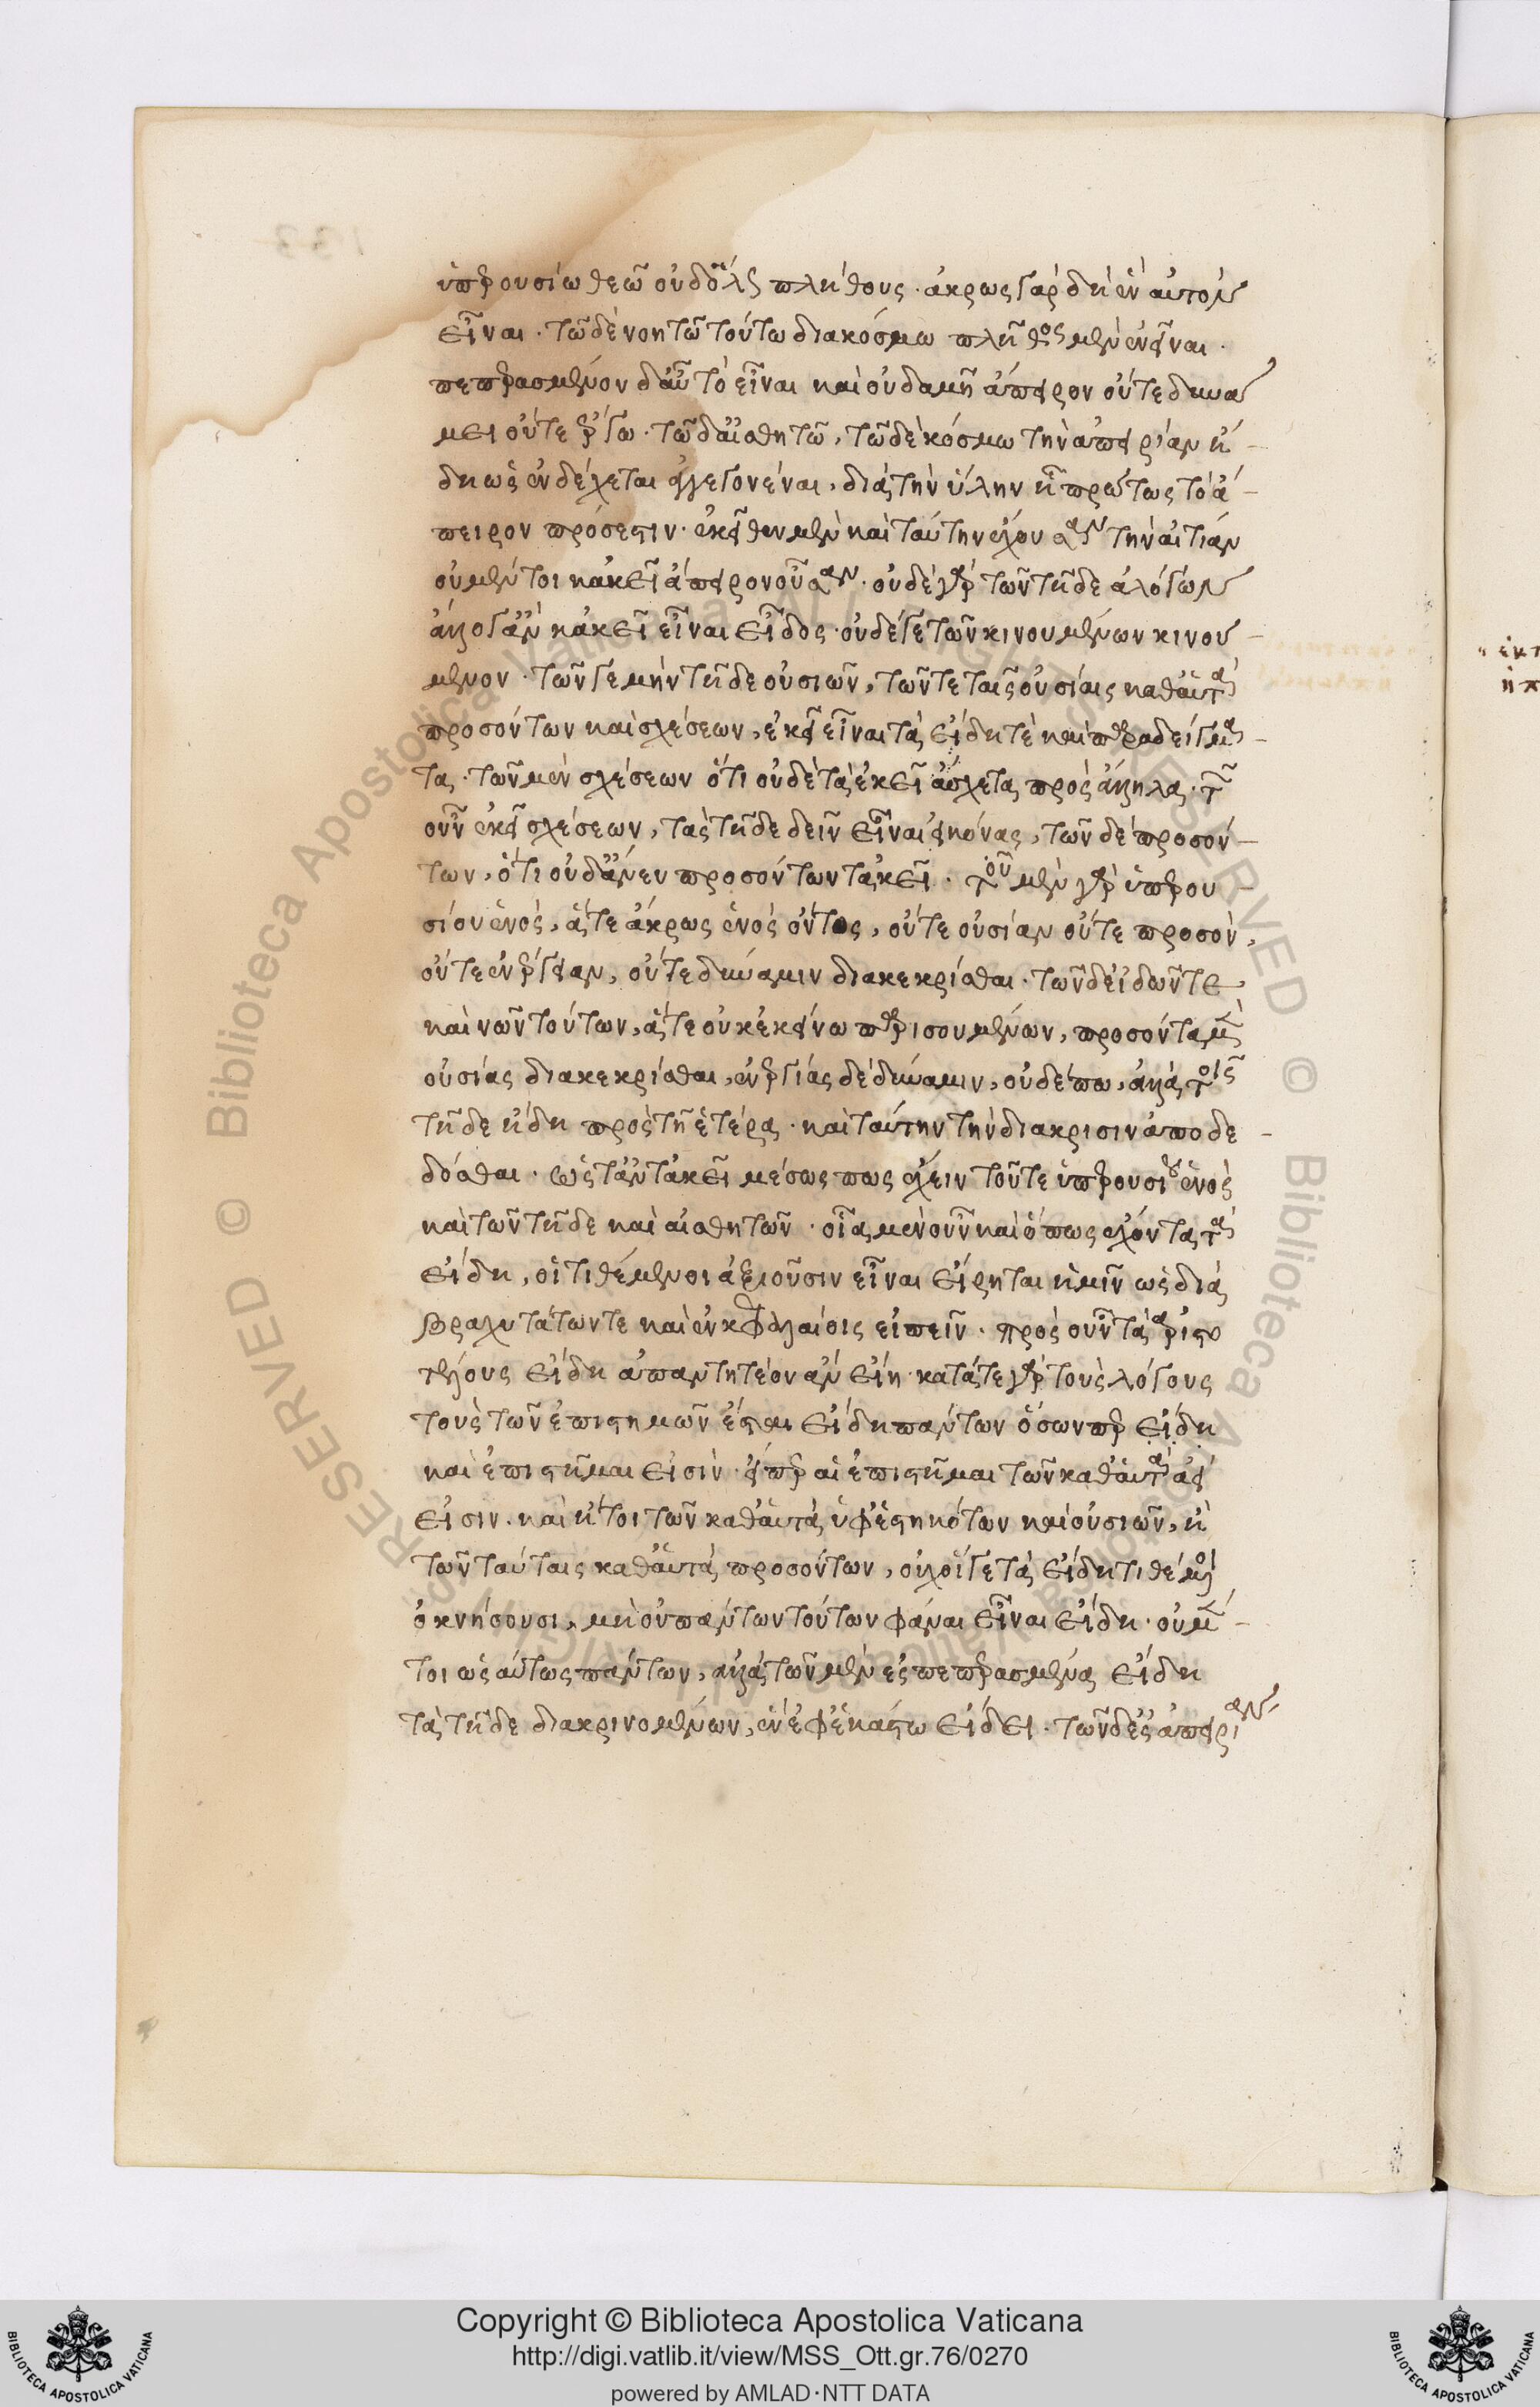 ὑπερουσίω θεῶ οὐδόλως πλήθους · ἄκρως γὰρ δὴ ἓν αὐτὸν
εἶναι · τῶ δὲ νοητῶ τούτω διακόσμω πλῆθος μὲν ἐνεῖναι ·
πεπερασμένον δ' αὖ τὸ εἶναι καὶ οὐδαμῆ ἄπειρον οὔτε δυνά
μει οὔτε ἔργω · τῶ δ' αἰσθητῶ, τῶ δὲ κόσμω τὴν ἀπειρίαν ἤ-
δη ὡς ἐνδέχεται ἐγγεγονέναι, διὰ τὴν ὕλην ἧ πρώτως τὸ ἄ-
πειρον πρόσεστιν · ἐκεῖθεν μὲν καὶ ταύτην ἔχουσαν τὴν αἰτίαν
οὐ μέντοι κἀκεῖ ἄπειρον οὖσαν · οὐδὲ γὰρ τῶν τῆδε ἀλόγων
ἄλογ' ἂν κἀκεῖ εἶναι εἶδος · οὐδέ γε τῶν κινουμένων κινού-
μενον · τῶν γε μὴν τῆδε οὐσιῶν, τῶν τε ταῖς οὐσίαις καθ' αὑτὰ
προσόντων καὶ σχέσεων, ἐκεῖ εἶναι τὰ εἴδη τὲ καὶ παραδείγμα-
τα · τῶν μὲν σχέσεων ὅτι οὐδὲ τὰ ἐκεῖ ἄσχετα πρὸς ἄλληλα · τῶν
οὖν ἐκεῖ σχέσεων, τὰς τῆδε δεῖν εἶναι εἰκόνας, τῶν δὲ προσόν-
των, ὅτι οὐδ' ἄνευ προσόντων τἀκεῖ · τοῦ μὲν γὰρ ὑπερου-
σίου ἑνὸς, ἅτε ἄκρως ἑνὸς ὄντος, οὔτε οὐσίαν οὔτε προσὸν,
οὔτε ἐνέργειαν, οὔτε δύναμιν διακεκρίσθαι · τῶν δὲ εἰδῶν τε
καὶ νῶν τούτων, ἅτε οὐκ ἐκείνω παρισουμένων, προσόντα μὲν
οὐσίας διακεκρίσθαι, ἐνεργείας δὲ δύναμιν, οὐδέπω, ἀλλὰ τοῖς
τῆδε ἤδη πρὸς τῆ ἑτέρα · καὶ ταύτην τὴν διάκρισιν ἀποδε-
δόσθαι · ὡς τἂν τἀκεῖ μέσως πως ἔχειν τοῦ τε ὑπερουσίου ἑνὸς
καὶ τῶν τῆδε καὶ αἰσθητῶν · οἷα μὲν οὖν καὶ ὅπως ἔχοντα τὰ
εἴδη, οἱ τιθέμενοι ἀξιοῦσιν εἶναι εἴρηται ἡμῖν ὡς διὰ
βραχυτάτων τε καὶ ἐν κεφαλαίοις εἰπεῖν · πρὸς οὖν τὰ ἀριστο
τέλους εἴδη ἀπαντητέον ἂν εἴη · κατά τε γὰρ τοὺς λόγους
τοὺς τῶν ἐπιστημῶν ἔσται εἴδη πάντων ὅσων περ εἴδη
καὶ ἐπιστῆμαι εἰσὶν · εἴπερ αἱ ἐπιστῆμαι τῶν καθ' αὑτὰ ἀεί
εἰσιν · καὶ ἤτοι τῶν καθ' αὑτὰ ὑφεστηκότων καὶ οὐσιῶν, ἢ
τῶν ταύταις καθ' αὑτὰ προσόντων, οὐχ οἵ γε τὰ εἴδη τιθέμενοι
ὀκνήσουσι, μὴ οὐ πάντων τούτων φάναι εἶναι εἴδη · οὐ μέν-
τοι ὡσαύτως πάντων, ἀλλὰ τῶν μὲν ἐς πεπερασμένα εἴδη
τὰ τῆδε διακρινομένων, ἓν ἐφ' ἑκάστω εἴδει · τῶν δὲ ἐς ἀπειρίαν
Copyright © Biblioteca Apostolica Vaticana
http://digi.vatlib.it/view/MSS_Ott.gr.76/0270
powered by AMLAD·NTT DATA